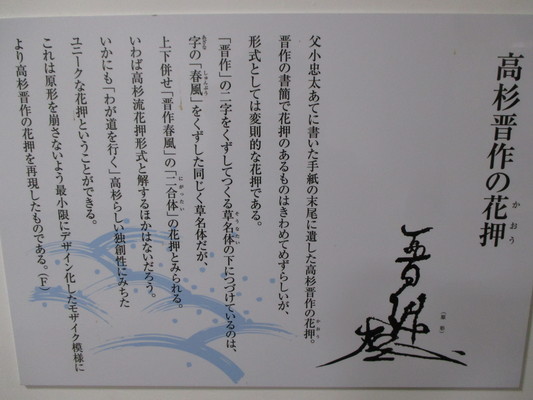 高杉晋作の花押
かおう
父小忠太あてに書いた手紙の末尾に遺した高杉晋作の花押。
晋作の書簡で花押のあるものはきわめてめずらしいが、
形式としては変則的な花押である。
「晋作」の二字をくずしてつくる草名体の下につづけているのは、
字の「春風」をくずした同じく草名体だが、
上下併せ「晋作春風」の「二合体」の花押とみられる。
いわば高杉流花押形式と解するほかはないだろう。
いかにも「わが道を行く」高杉らしい独創性にみちた
ユニークな花押ということができる。
これは原形を崩さないよう最小限にデザイン化したモザイク模様に
より高杉晋作の花押を再現したものである。(下)